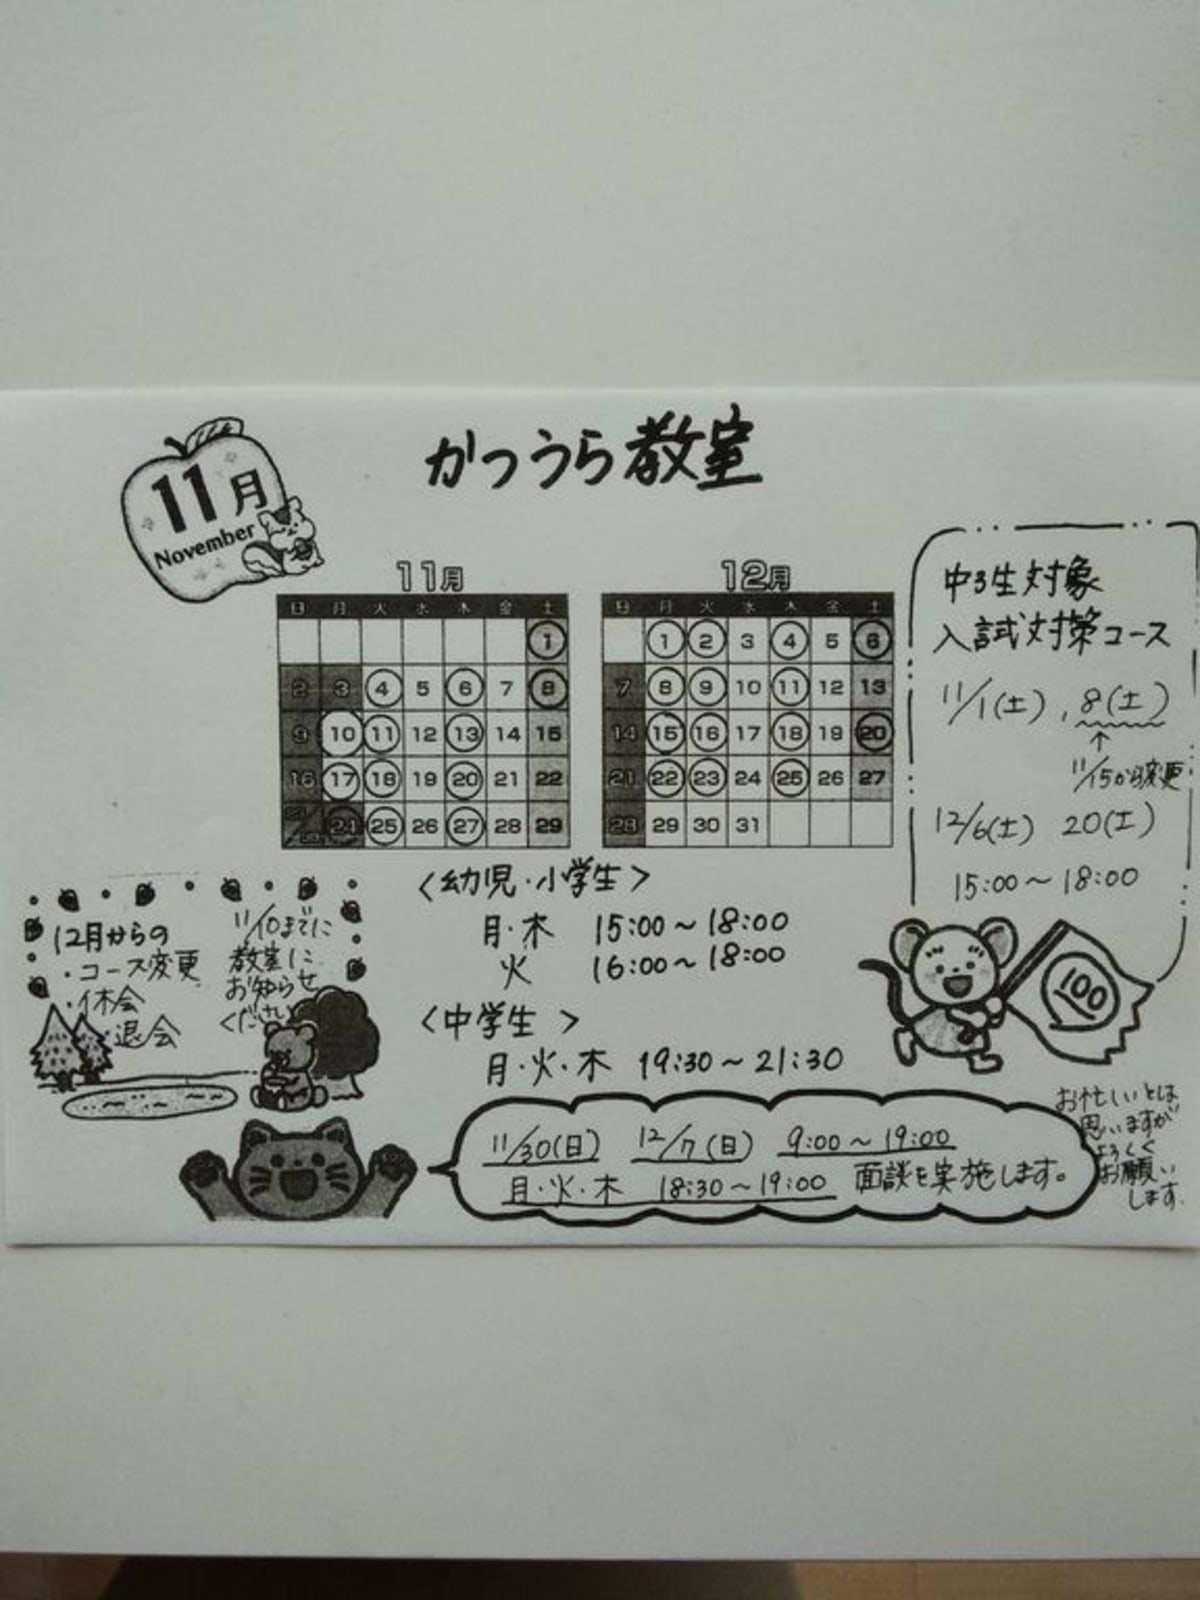 かつうら教室
11月
November
11月
日 月 火 水 木 金 土
1
2 3 4 5 6 7 8
9 10 11 12 13 14 15
16 17 18 19 20 21 22
23/30 24 25 26 27 28 29
12月
日 月 火 水 木 金 土
1 2 3 4 5 6
7 8 9 10 11 12 13
14 15 16 17 18 19 20
21 22 23 24 25 26 27
28 29 30 31
中3生対象
入試対策コース
11/1(土), 8(土)
↑
11/15から変更
12/6(土) 20(土)
15:00～18:00
100
<幼児・小学生>
月・木 15:00～18:00
火 16:00～18:00
<中学生>
月・火・木 19:30～21:30
12月からの
・コース変更
・休会
・退会
11/10までに
教室に
お知らせ
ください
11/30(日) 12/7(日) 9:00～19:00
月・火・木 18:30～19:00 面談を実施します。
お忙しいとは
思いますが
よろしく
お願い
します。